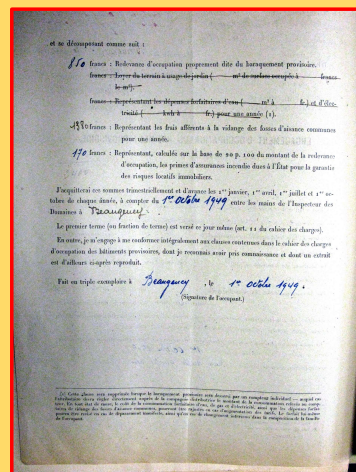 et se décomposant comme suit :
850 francs : Redevance d'occupation proprement dite du baraquement provisoire.
francs : Loyer du terrain à usage de jardin ( m² de surface occupée à francs
le m²).
francs : Représentant les dépenses forfaitaires d'eau ( m³ à fr.) et d'élec-
tricité ( kwh à fr.) pour une année (1).
francs : Représentant les frais afférents à la vidange des fosses d'aisance communes
pour une année.
170 francs : Représentant, calculés sur la base de 20 p. 100 du montant de la redevance
d'occupation, les primes d'assurances incendie dues à l'État pour la garantie
des risques locatifs immobiliers.
J'acquitterai ces sommes trimestriellement et d'avance les 1ers janvier, 1er avril, 1er juillet et 1er oc-
tobre de chaque année, à compter du 1er Octobre 1949 entre les mains de l'Inspecteur des
Domaines à Beaugency.
Le premier terme (ou fraction de terme) est versé ce jour même (art. 11 du cahier des charges).
En outre, je m'engage à me conformer intégralement aux clauses contenues dans le cahier des charges
d'occupation des bâtiments provisoires, dont je reconnais avoir pris connaissance et dont un extrait
est d'ailleurs ci-après reproduit.
Fait en triple exemplaire à Beaugency, le 1er octobre 1949.
(Signature de l'occupant.)